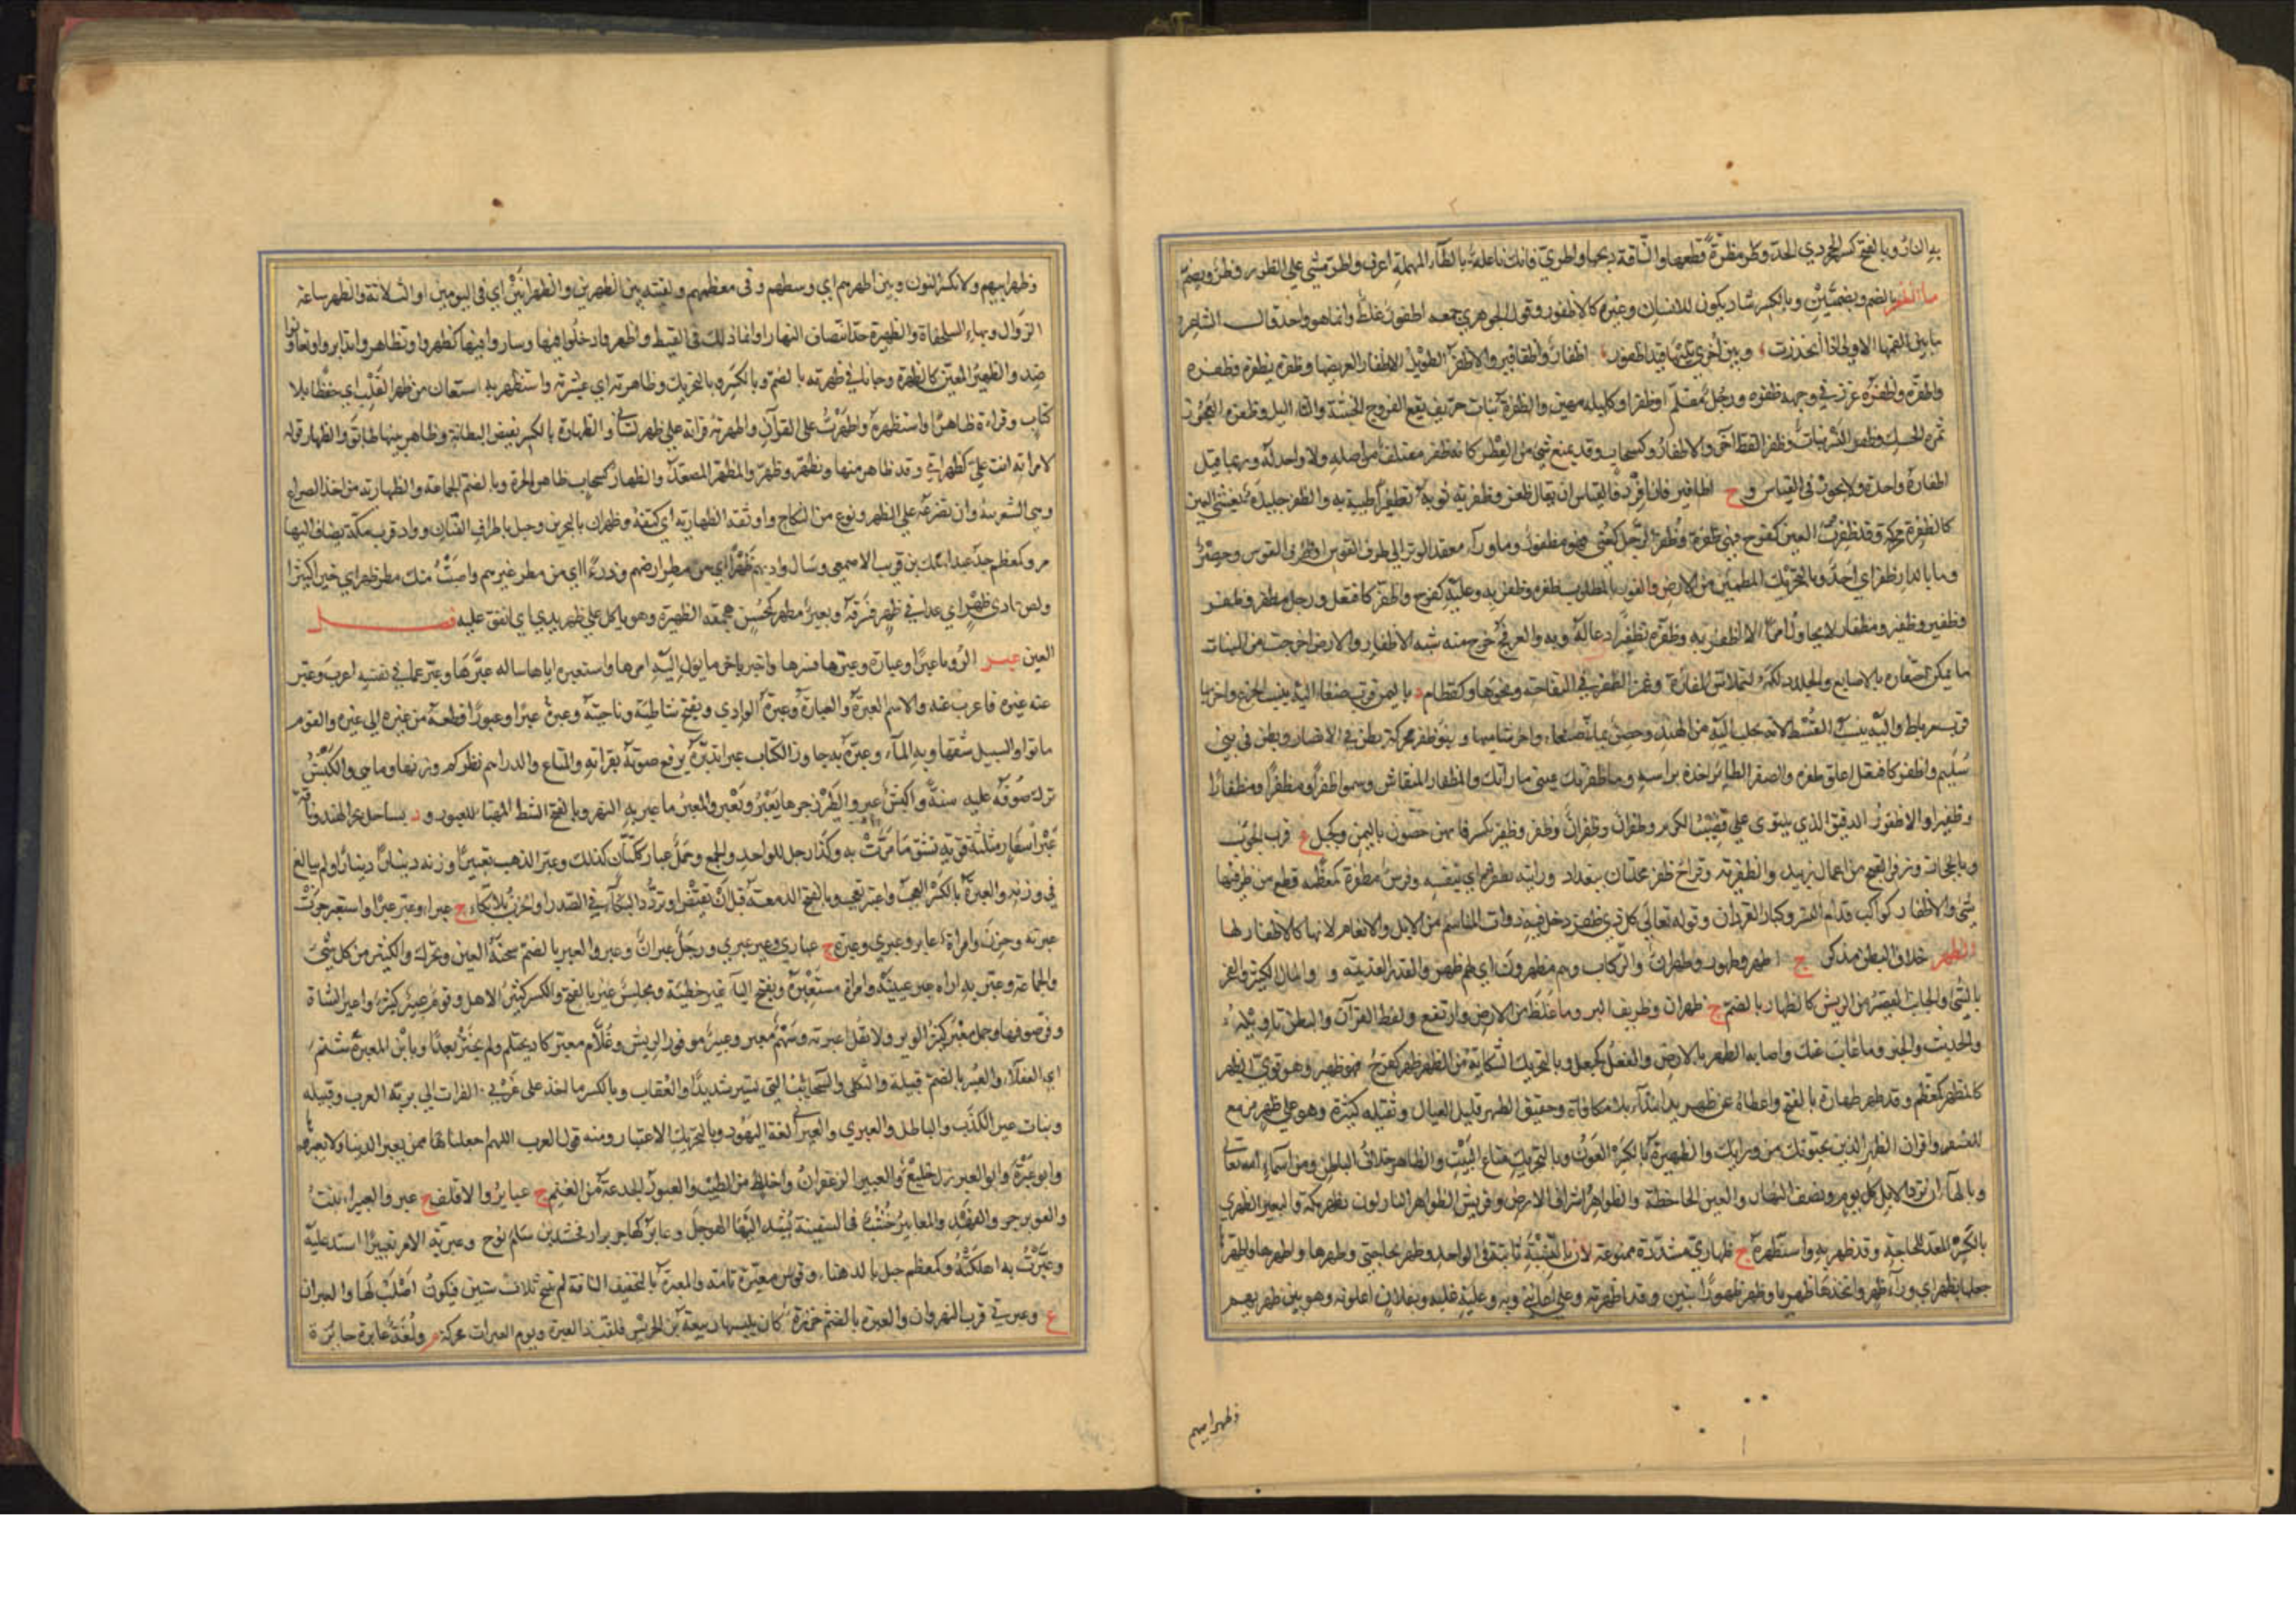 به الناقة وبالفتح كسر الحجر ذي الحد وظر مظرة قطعها والناقة ذبحها واطري فانك ناعلة بالطاء المهملة اعرف واظر مشى على الظرر وظر ويضم
ما الظفر بالضم وبضمتين وبالكسر شاذ يكون للانسان وغيره كالاظفور وقول الجوهري جمعه اظفور غلط وانما هو واحد قال الشاعر
ما بين لقمتها الاولى اذا انحدرت وبين اخرى تليها قيد اظفور اظفار واظافير والاظفر الطويل الاظفار العريضها وظفره يظفره وظفره
واظفره غرز في وجهه ظفره ورجل مقلم الظفر او كليله مهين والظفرة نبات حريف ينفع القروح الخبيثة والثآليل وظفره العجوز
ثمرة الحسك وظفر النسر نبات وظفر القط اخر والاظفار وكسحاب وقد يمنع شيء من العطر كانه ظفر مقتلف من اصله ولا واحد له وربما قيل
اظفارة واحدة ولا يجوز في القياس وج اظافير فان افرد فالقياس ان يقال ظفر وظفر به ثوبه تظفيرا طيبه به والظفر جليدة تغشي العين
كالظفرة محركة وقد ظفرت العين كفرح فهي ظفرة وظفر الرجل كعني فهو مظفور وما وراء معقد الوتر الى طرف القوس او طرف القوس وحصن
وما بالدار ظفر اي احد وبالتحريك المطمئن من الارض والفوز بالمطلوب ظفره وظفر به وعليه كفرح واظفر كافتعل ورجل مظفر وظفر
وظفير وظفير ومظفار لا يحاول امرا الا ظفر به وظفره تظفيرا دعا له وبه والعرفج خرج منه شبه الاظفار والارض اخرجت من النبات
ما يمكن احتفاره بالاصابع والجلد دلكه لتملاس اظفاره وغمز الظفر في التفاحة ونحوها وكقطام د باليمن قرب صنعاء اليه ينسب الجزع واخر بها
قرب مرباط واليه ينسب القسط لانه يجلب اليه من الهند وحصن يماني صنعاء واخر شاميها وبنو ظفر محركة بطن في الانصار وبطن في بني
سليم واظفر كافتعل اعلق ظفره والصقر الطائر اخذه براثنه وما ظفرتك عيني ما راتك والمظفار المنقاش وسموا ظفرا ومظفرا ومظفارا
وظفيرا والاظفور الدقيق الذي يلتوي على قضيب الكرم وظفران وظفران وظفر وظفير بكسر فائهن حصون باليمن وكجبل ع قرب الحوأب
وبالحجاز وذو ظفر من اعمال زبيد والظفرية وقراح ظفر محلتان ببغداد ورايته بظفره اي بنفسه وفرس مظفرة كمعظمة قطع من ظرفها
شيء والاظفار كواكب قدام النسر وكبار القردان وقوله تعالى كل ذي ظفر دخل فيه ذوات المناسم من الابل والانعام لانها كالاظفار لها
الظهر خلاف البطن مذكر ج اظهر وظهور وظهران والركاب وهم مظهرون اي لهم ظهر والقدر القديمة و والمال الكثير والفخر
بالشيء والجانب القصير من الريش كالظهار بالضم ج ظهران وطريق البر وما غلظ من الارض وارتفع ولفظ القرآن والبطن تاويله
والحديث والخبر وما غاب عنك واصابة الظهر بالارض والفعل كجعل وبالتحريك الشكاية من الظهر ظهر كفرح فهو ظهير وهو قوي الظهر
كالمظهر كمعظم وقد ظهر ظهارة بالفتح واعطاه عن ظهر يد ابتداء بلا مكافاة وخفيف الظهر قليل العيال وثقيله كثيره وهو على ظهر مزمع
للسفر واقران الظهر الذين يجيئونك من ورائك والظهيرة بالكسر العون وبالتحريك متاع البيت والظاهر خلاف الباطن ومن اسماء الله تعالى
وبالهاء ان ترد الابل كل يوم ونصف النهار والعين الجاحظة والظواهر اشراف الارض وقريش الظواهر النازلون بظهر مكة والبعير الظهري
بالكسر المعد للحاجة وقد ظهر به واستظهره ج ظهاري مشددة ممنوعة لان ياء النسبة ثابتة في الواحد وظهر بحاجتي وظهرها واظهرها واظهرها
جعلها بظهر اي وراء ظهر واتخذها ظهريا وظهر ظهورا تبين وقد اظهرته وعلي اعانني وبه وعليه غلبه وبفلان اعلن به وهو بين ظهريهم
وظهرانيهم
وظهرانيهم ولا تكسر النون وبين اظهرهم اي وسطهم وفي معظمهم ولقيته بين الظهرين والظهرانين اي في اليومين او الثلاثة والظهر ساعة
الزوال وبهاء السلحفاة والظهيرة حد انتصاف النهار او انما ذلك في القيظ واظهروا دخلوا فيها وساروا فيها كظهروا وتظاهروا تدابروا وتعاونوا
ضد والظهير المعين كالظهرة وجاءنا في ظهرته بالضم وبالكسر وبالتحريك وظاهرته اي عشيرته واستظهر به استعان من ظهر القلب اي حفظا بلا
كتاب وقراءة ظاهرا واستظهره واظهرت على القرآن واظهرته قراته على ظهر لساني والظهارة بالكسر نقيض البطانة وظاهر بينهما طابق والظهار قوله
لامراته انت علي كظهر امي وقد ظاهر منها وتظهر وظهر والمظهر المصعد والظهار كسحاب ظاهر الحرة وبالضم الجماعة والظهارية من اخذ الصراع
وهي الشغزبية وان تصرعه على الظهر ونوع من النكاح واوثقه الظهارية اي كتفه وظهران بالبحرين وجبل باطراف القنان وواد قرب مكة يضاف اليها
مر وكمعظم جد عبد الملك بن قريب الاصمعي وسال واديهم ظهرا اي من مطر ارضهم ودرءا اي من مطر غيرهم واصبت منك مطر ظهر اي خيرا كثيرا
ولص عادي ظهر اي عدا في ظهر فسرقه وبعير مظهر كمحسن هجمته الظهيرة وهو ياكل على ظهر يدي اي انفق عليه فصل
العين عبر الرؤيا عبرا وعبارة وعبرها فسرها واخبر باخر ما يؤل اليه امرها واستعبره اياها ساله عبرها وعبر عما في نفسه اعرب وعبر
عنه غيره فاعرب عنه والاسم العبرة والعبارة وعبرة الوادي ويفتح شاطئه وناحيته وعبره عبرا وعبورا قطعه من عبره الى عبره والقوم
ماتوا والسبيل شقها وبه الماء وعبره به جاوز والكتاب عبرا تدبره لم يرفع صوته بقراءته والمتاع والدراهم نظر كم وزنها وما هي والكبش
ترك صوفه عليه سنة واكبش عبر والطير زجرها يعبر ويعبر والمعبر ما عبر به النهر وبالفتح الشط المهيا للعبور و د بساحل بحر الهند وناقة
عبر اسفار مثلثة قوية تشق ما مرت به وكذا رجل للواحد والجمع وجمل عبار ككتان كذلك وعبر الذهب تعبيرا وزنه دينارا دينارا ولم يبالغ
في وزنه والعبرة بالكسر العجب واعتبر تعجب وبالفتح الدمعة قبل ان تفيض او تردد البكاء في الصدر او الحزن بلا بكاء ج عبرات وعبر عبرا واستعبر جرت
عبرته وحزن وامراة عابر وعبرى وعبرة ج عبارى وعين عبرى ورجل عبران وعبر والعبر بالضم سخنة العين ويحرك والكثير من كل شيء
والجماعة وعبر به اراه عبر عينه وامراة مستعبرة وبفتح الباء غير حظية ومجلس عبر بالفتح والكسر كثير الاهل وقوم عبير كثير واعبر الشاة
وفر صوفها وجمل معبر كثير الوبر ولا تقل اعبرته وسهم معبر وعبر موفور الريش وغلام معبر كاد يحتلم ولم يختن بعد ويا ابن المعبرة شتم
اي العفلاء والعبر بالضم قبيلة والثكلى والسحائب التي تسير شديدا والعقاب وبالكسر ما اخذ على غربي الفرات الى برية العرب وقبيلة
وبنات عبر الكذب والباطل والعبري والعبراني لغة اليهود وبالتحريك الاعتبار ومنه قول العرب اللهم اجعلنا ممن يعبر الدنيا ولا يعبرها
وابو عبرة وابو العبر رجل خليع والعبير الزعفران واخلاط من الطيب والعبور الجذعة من الغنم ج عبائر والاقلف ج عبر والعبيراء نبت
والعوبر جرو الفهد والمعابير خشب في السفينة يشد اليها الهوجل وعابر كهاجر بن ارفخشذ بن سام بن نوح وعبر به الامر تعبيرا اشتد عليه
وعبرت به اهلكته وكمعظم جبل بالدهناء وقوس معبرة تامة والمعبرة بالتخفيف الناقة لم تنتج ثلاث سنين فيكون اصلب لها والعبران
ع وعبرتي قرب النهروان والعبرة بالضم خرزة كان يلبسها ربيعة بن الحريش فلقب ذا العبرة ويوم العبرات محركة م ولغة عابرة جائزة